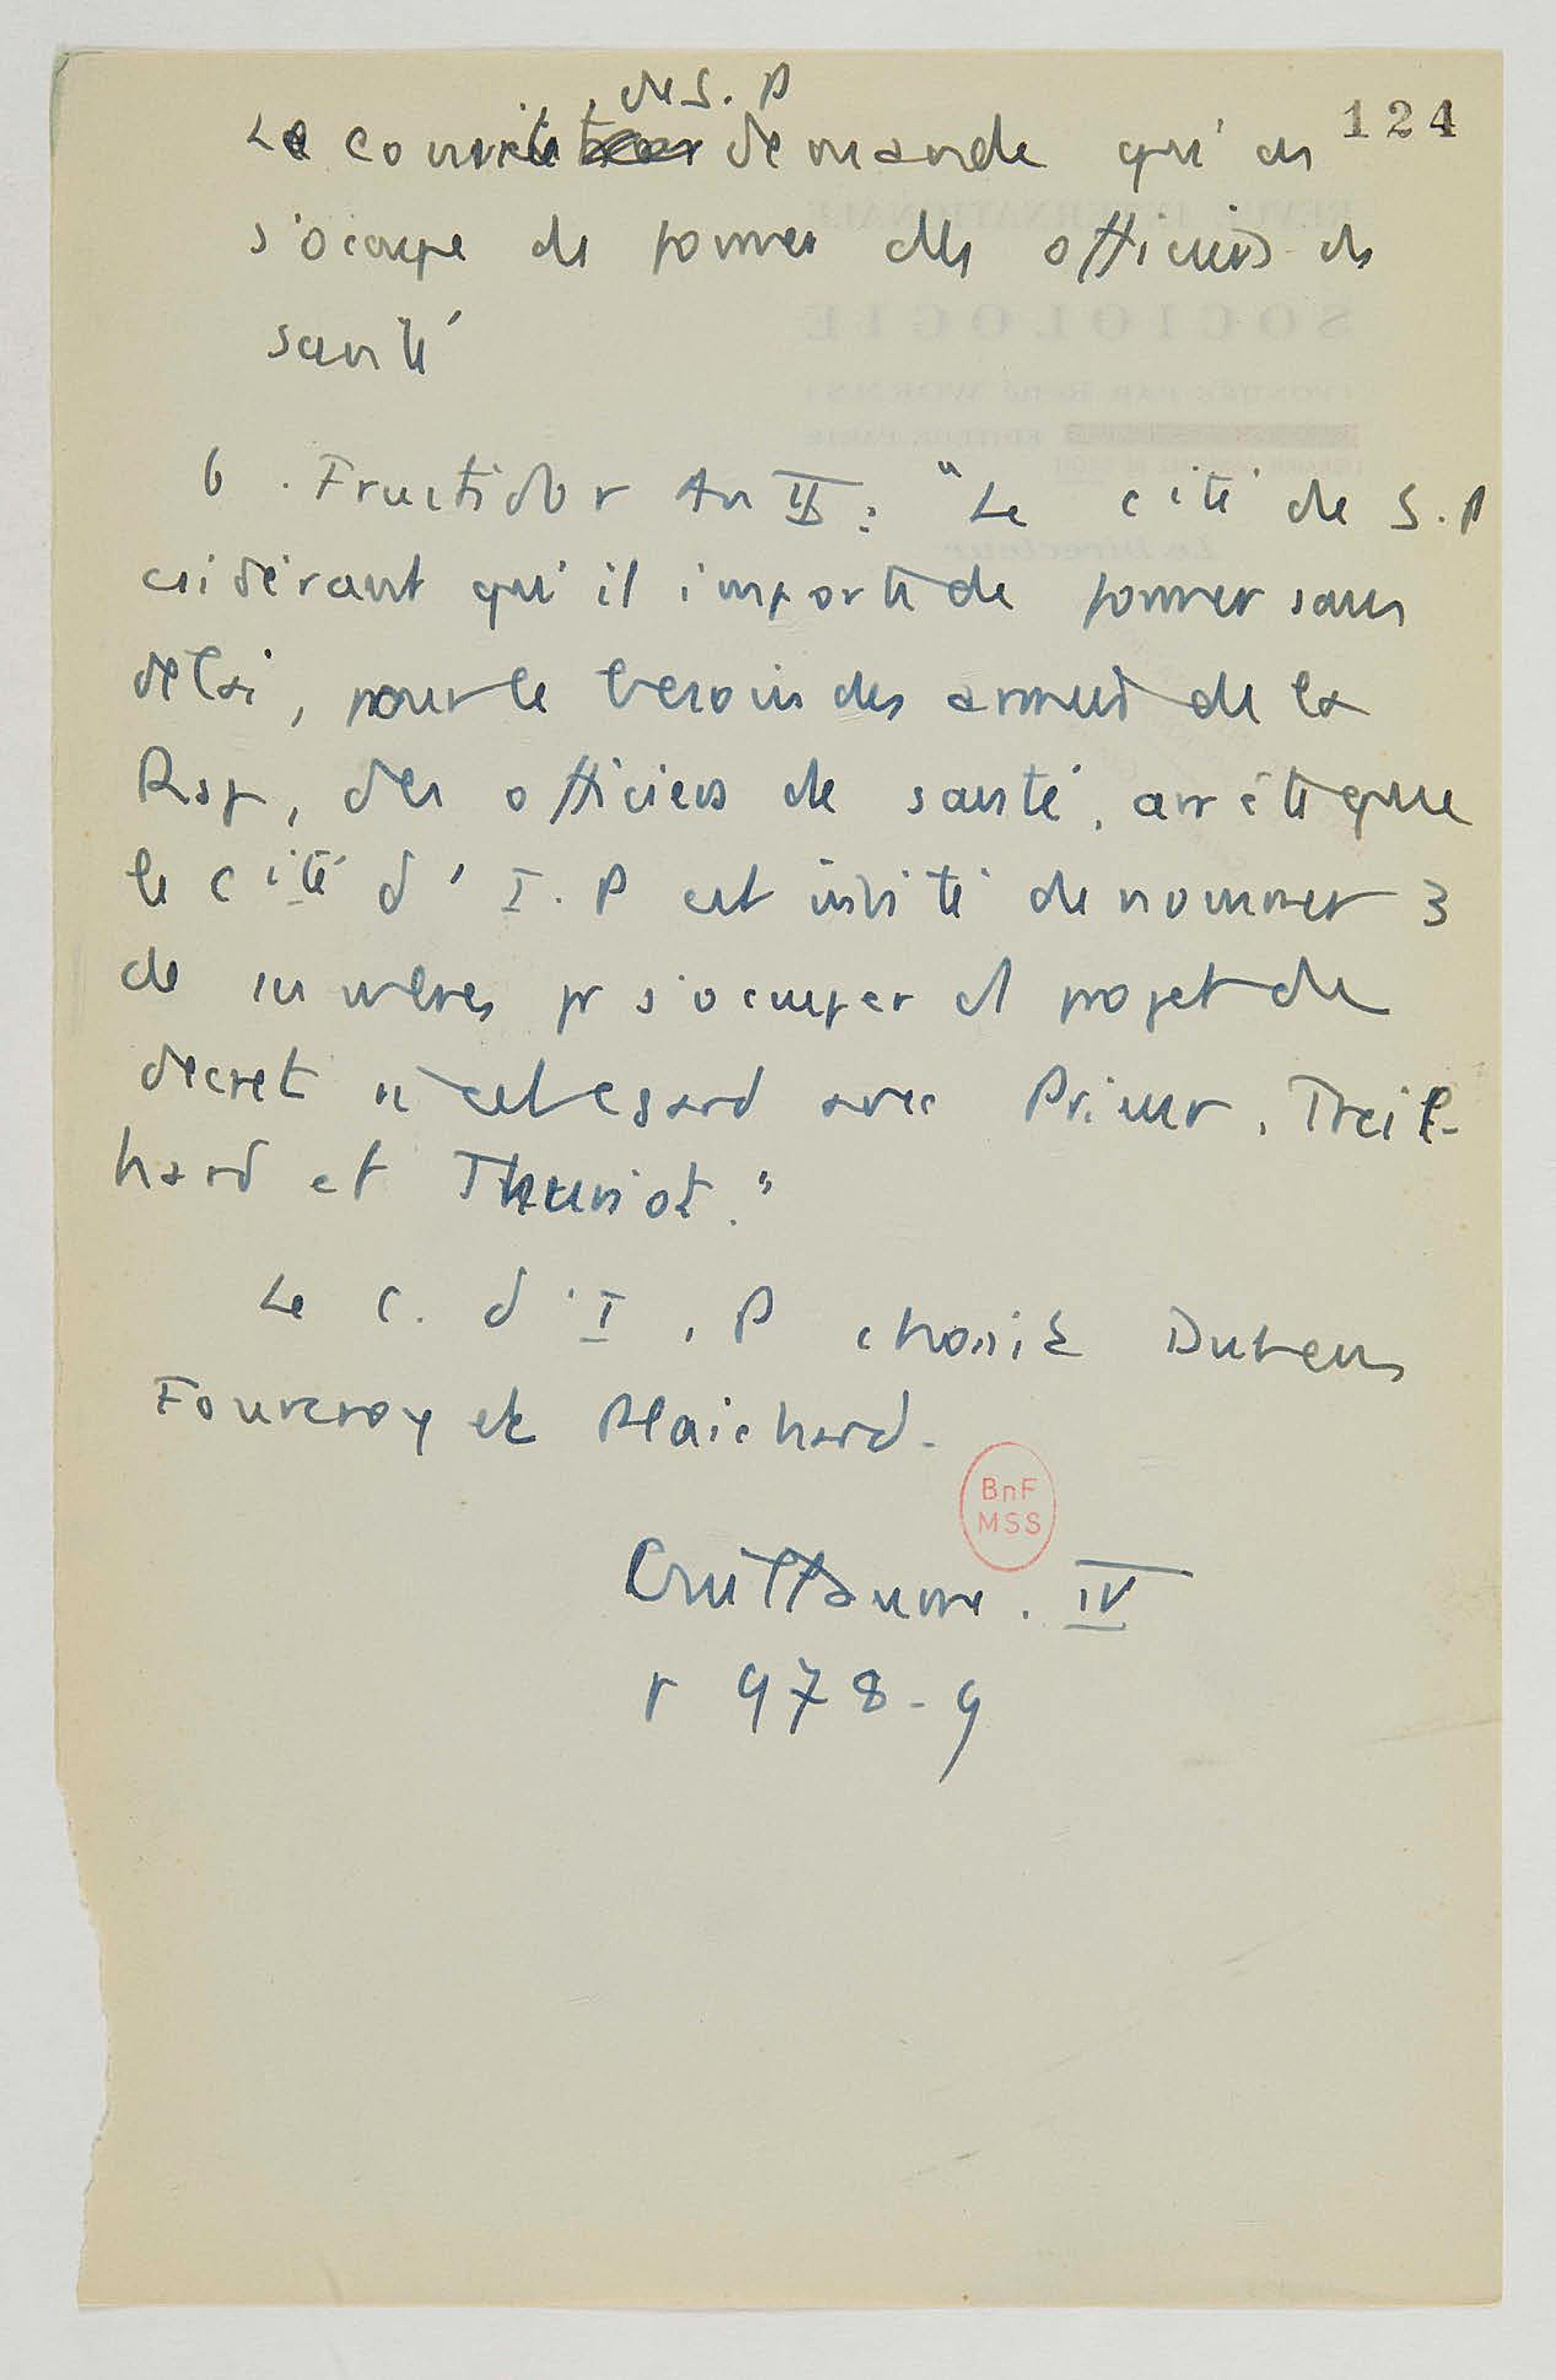 de S. P
124
Le comité demande qu'on
s'occupe de former des officiers de
santé
6. Fructidor An II : "Le cité de S. P
csidérant qu'il importe de former sans
délai, pour le besoin des armées de la
Rep, des officiers de santé, arrête que
le cité d'I. P est invité de nommer 3
de membres pr s'occuper d projet de
décret à cet egard avec Prieur, Treil-
hard et Thuriot."
Le C. d'I. P choisit
Fourcroy et Plaichard.
BnF
MSS
Guillaume. IV
p 978-9